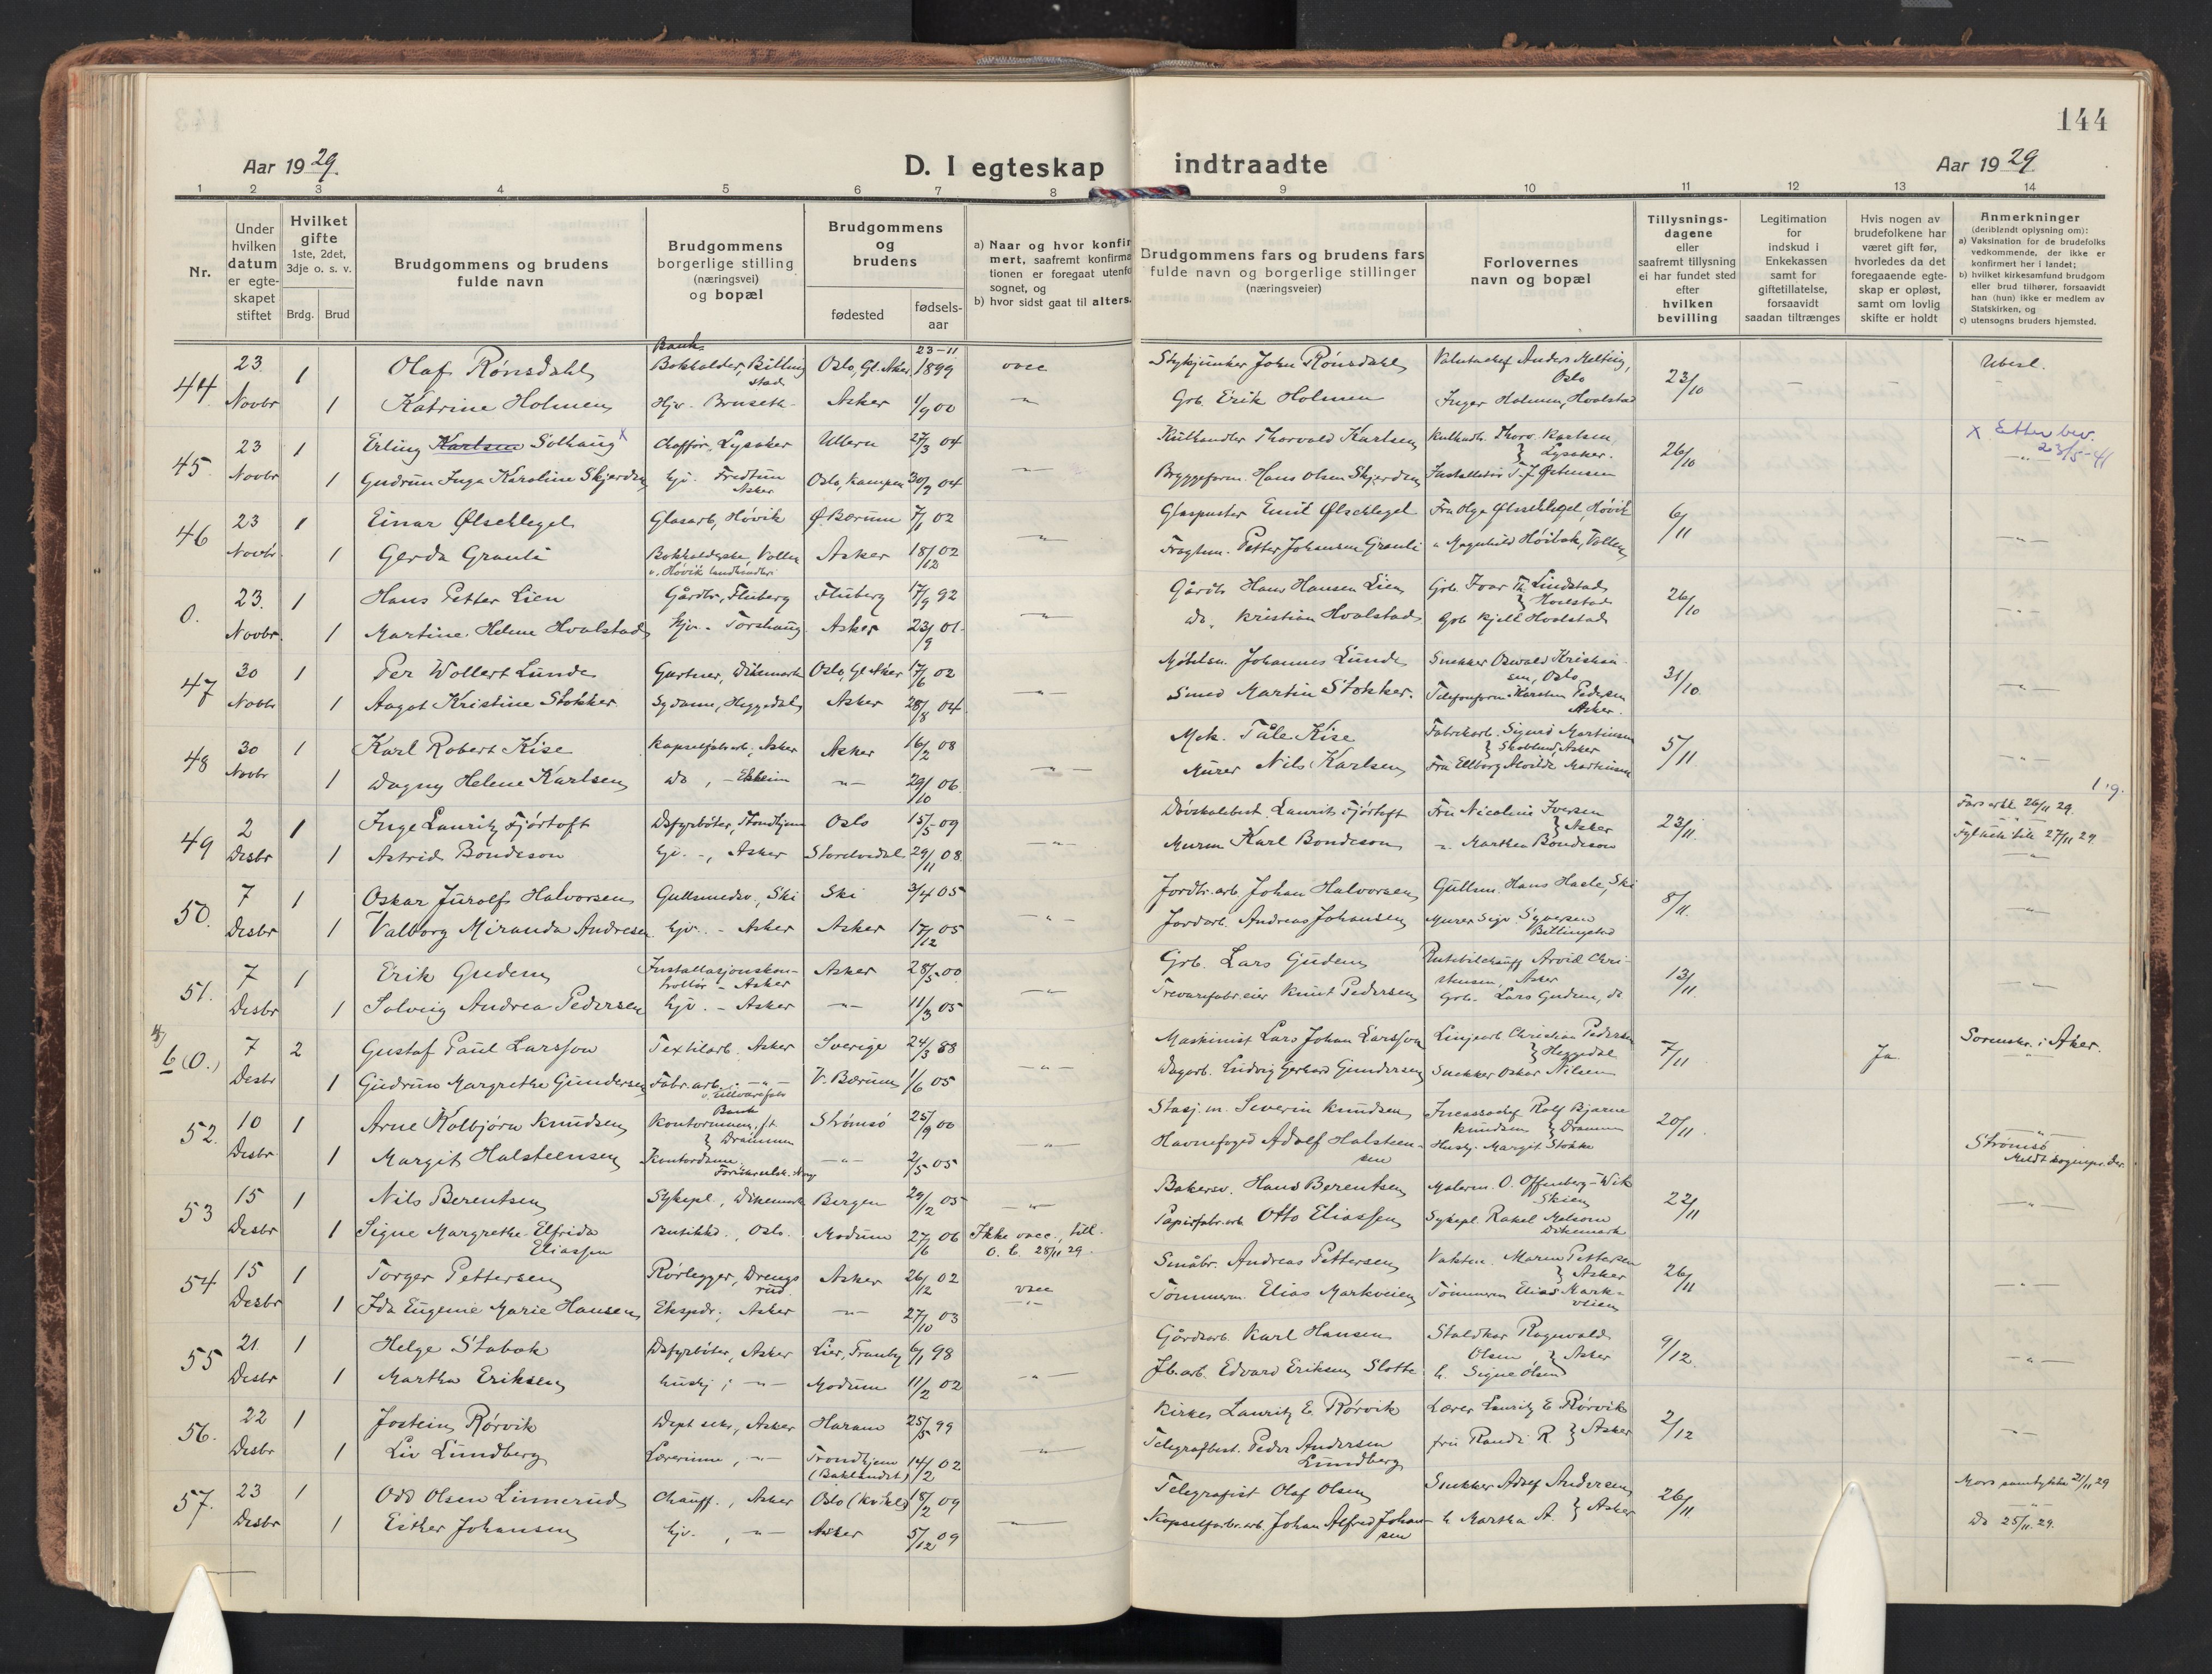 144
Aar 1929.
D. I egteskap indtraadte
Aar 1929.
1 2 3 4 5 6 7 8 9 10 11 12 13 14
Nr.
Under hvilken datum er egteskapet stiftet
Hvilket gifte 1ste, 2det, 3dje o. s. v.
Brdg. Brud
Brudgommens og brudens fulde navn
Brudgommens borgerlige stilling (næringsvei) og bopæl
Brudgommens og brudens
fødested
fødselsaar
a) Naar og hvor konfirmert, saafremt konfirma
tionen er foregaat utenfo
sognet, og
b) hvor sidst gaat til alters.
Brudgommens fars og brudens fars fulde navn og borgerlige stillinger (næringsveier)
Forlovernes navn og bopæl
Tillysningsdagene eller saafremt tillysning ei har fundet sted efter hvilken bevilling
Legitimation for indskud i Enkekassen samt for giftetillatelse, forsaavidt saadan tiltrænges
Hvis nogen av brudefolkene har været gift før, hvorledes da det foregaaende egteskap er opløst, samt om lovlig skifte er holdt
Anmerkninger
(deriblandt oplysning om):
a) Vaksination for de brudefolks vedkommende, der ikke er konfirmert her i landet;
b) hvilket kirkesamfund brudgom eller brud tilhører, forsaavidt han (hun) ikke er medlem av Statskirken, og
c) utensogns bruders hjemsted.
44 23 1 Olaf Rønsdahl Bank Bokholder, Billingstad Oslo, Gl. Aker 23-11 1899 vacc Johan Rønsdahl Anders Melting, Oslo 23/10 Ubesl.
Novbr 1 Katrine Holmen Hjv. Bruseth Asker 1/9 00 Grb. Erik Holmen Inger Holmen, Hvalstad
45. 23 1 Erling Karlsen Solhaug x Chaffør, Lysaker Ullern 27/3 04 Kulhandler Thorvald Karlsen Kulhandl. Thorv. Karlsen Lysaker. 26/10 x Etter bev. 23/5-41
Novbr 1 Gudrun Inga Karoline Skjerden hjv. Fredtun Asker Oslo, Kampen 30/9 04 Bryggeform. Hans Olsen Skjerden Installatør T. J. Østensen
46 23 1 Einar Ølschlegel Glasarb, Høvik Ø. Bærum 7/1 02 Glaspuster Emil Ølschlegel Fru Olga Ølschlegel, Høvik 6/11
Novbr. 1 Gerda Granli Bokholderske, Vollen v. Høvik landhandleri Asker 18/12 02 Fragtem. Petter Johansen Granli " Magnhild Høibak, Vollen
0. 23. 1 Hans Petter Lien Gårdbr, Fluberg Fluberg 17/9 92 Gårdb. Hans Hansen Lien Grb. Ivar Th. Lindstad Hvalstad 26/10
Novbr. 1 Martine Helene Hvalstad hjv. - Torshaug Asker 23/9 01 do. Kristian Hvalstad Grb Kjell Hvalstad
47 30 1 Per Wollert Lunde Gartner, Dikemark Oslo, Gl. Aker 17/6 02 Møbelsn. Johannes Lunde Snekker Oswald Kristiansen, Oslo 31/10
Novbr 1 Aagot Kristine Stokker Sydame, Heggedal Asker 28/8 04 Smed Martin Stokker. Telefonform Karsten Pedersen Asker.
48 30 1 Karl Robert Kise Kapselfabrarb, Asker Asker 16/2 08 Mek. Tåle Kise Fabrikarb. Sigurd Martinsen Skoblund, Asker 5/11
Novbr 1 Dagny Helene Karlsen do, - Ekheim -"- 29/10 06 Murer Nils Karlsen Fru Ellborg Alvilde Martinsen
49 2 1 Inge Lauritz Fjørtoft Dsfyrbøter, Trondhjem Oslo 15/5 09 Døvskolebest. Laurits Fjørtoft Fru Nicoline Iversen Asker 23/11 Fars erkl 26/11 29.
Desbr 1 Astrid Bondeson hj. -, Asker Stordvsdal 29/11 08 Murer Karl Bondeson -"- Marthea Bondeson Fylkets till 27/11 29
50. 7 1 Oskar Jurolf Halvorsen Gullsmedsv., Ski Ski 3/4 05 Jordbr.arb. Johan Halvorsen Gullsm. Hans Haele, Ski 8/11.
Desbr 1 Valborg Miranda Andresen hjv. - Asker Asker 17/12 05 Jordarb. Andreas Johansen Murer Sigv. Syversen Billingstad
51. 7 1 Erik Gudem Installasjonskontrollør - Asker Asker 28/5 00 Grb. Lars Gudem Rutebilchauff Arvid Christensen, Asker 13/11.
Desbr 1 Solveig Andrea Pedersen hjv. - Asker -"- 11/3 05 Trevarefabr.eier Knut Pedersen Grb. Lars Gudem, do
b (0.) 7 2 Gustaf Paul Larsson Textilarb. Asker Sverige 24/3 88 Maskinist Lars Johan Larsson Linjearb Christian Pedersen Heggedal 7/11 Ja Sorenskr. i Aker.
Desbr 1 Gudrun Margrethe Gundersen Fabr.arb. -"- v. Ullvarefabr V. Bærum 1/6 05 Dagarb. Ludvig Gerhard Gundersen Snekker Oskar Nilsen
52. 10 1 Arne Kolbjørn Knudsen Bank Kontormann, ft Drammen Strømsø 25/9 00 Stasj. m. Severin Knudsen Incassochef Rolf Bjarne Knudsen Drammen 20/11
Desbr 1 Margit Halsteensen Kontordame -"- 2/5 05 Havnefoged Adolf Halsteensen Husbj. Margit Stokke Strømsø Meldt sognepr. der.
53 15 1 Nils Berentsen Sykepl, Dikemark Bergen 29/12 05 Bakersv. Hans Berentsen Malerm. O. Offenberg-Wik Skien 22/11
Desbr 1 Signe Margrethe Elfrida Eliassen Butikkd., Oslo. Modum 27/6 06 Ikke vacc., till. O. b. 28/11 29. Papirfabr.arb Otto Eliassen Sykepl Rakel Melsom Dikemark
54 15 1 Torger Pettersen Rørlegger, Drengsrud Asker 26/12 02 vacc Småbr. Andreas Pettersen Vaktm. Maren Pettersen Asker 26/11
Desbr 1 Ida Eugenie Marie Hansen Ekspdr., Asker -"- 27/10 03 Tømmerm. Elias Markveien Tømmerm Elias Markveien
55 21. 1 Helge Stabæk Dsfyrbøter, Asker Lier, Tranby 6/1 98 Gårdsarb. Karl Hansen Staldkar Ragnvald Olsen Asker 9/12
Desbr 1 Martha Eriksen husbj, -"- Modum 11/2 02 Jb.arb. Edvard Eriksen Slotte h. Signe Olsen
56. 22 1 Jostein Rørvik Dept sekr., Asker Haram 25/5 99 Kirkes Lauritz E. Rørvik Lærer Lauritz E Rørvik 2/12
Desbr 1 Liv Lundberg Lærerinne, -"- Trondhjem (Baklandet) 14/2 02 Telegrafbest. Peder Andersen Lundberg fru Randi R. Asker
57. 23 1 Odd Olsen Linnerud Chauff., Asker Oslo 18/2 09 Telegrafist Olaf Olsen Snekker Adolf Andersen 26/11 Mors samtykke 21/11 29
Desbr 1 Esther Johansen hjv., -"- Asker 5/12 09 Kapselfabr.arb. Johan Alfred Johansen h Martha A. Asker Do 25/11 29.